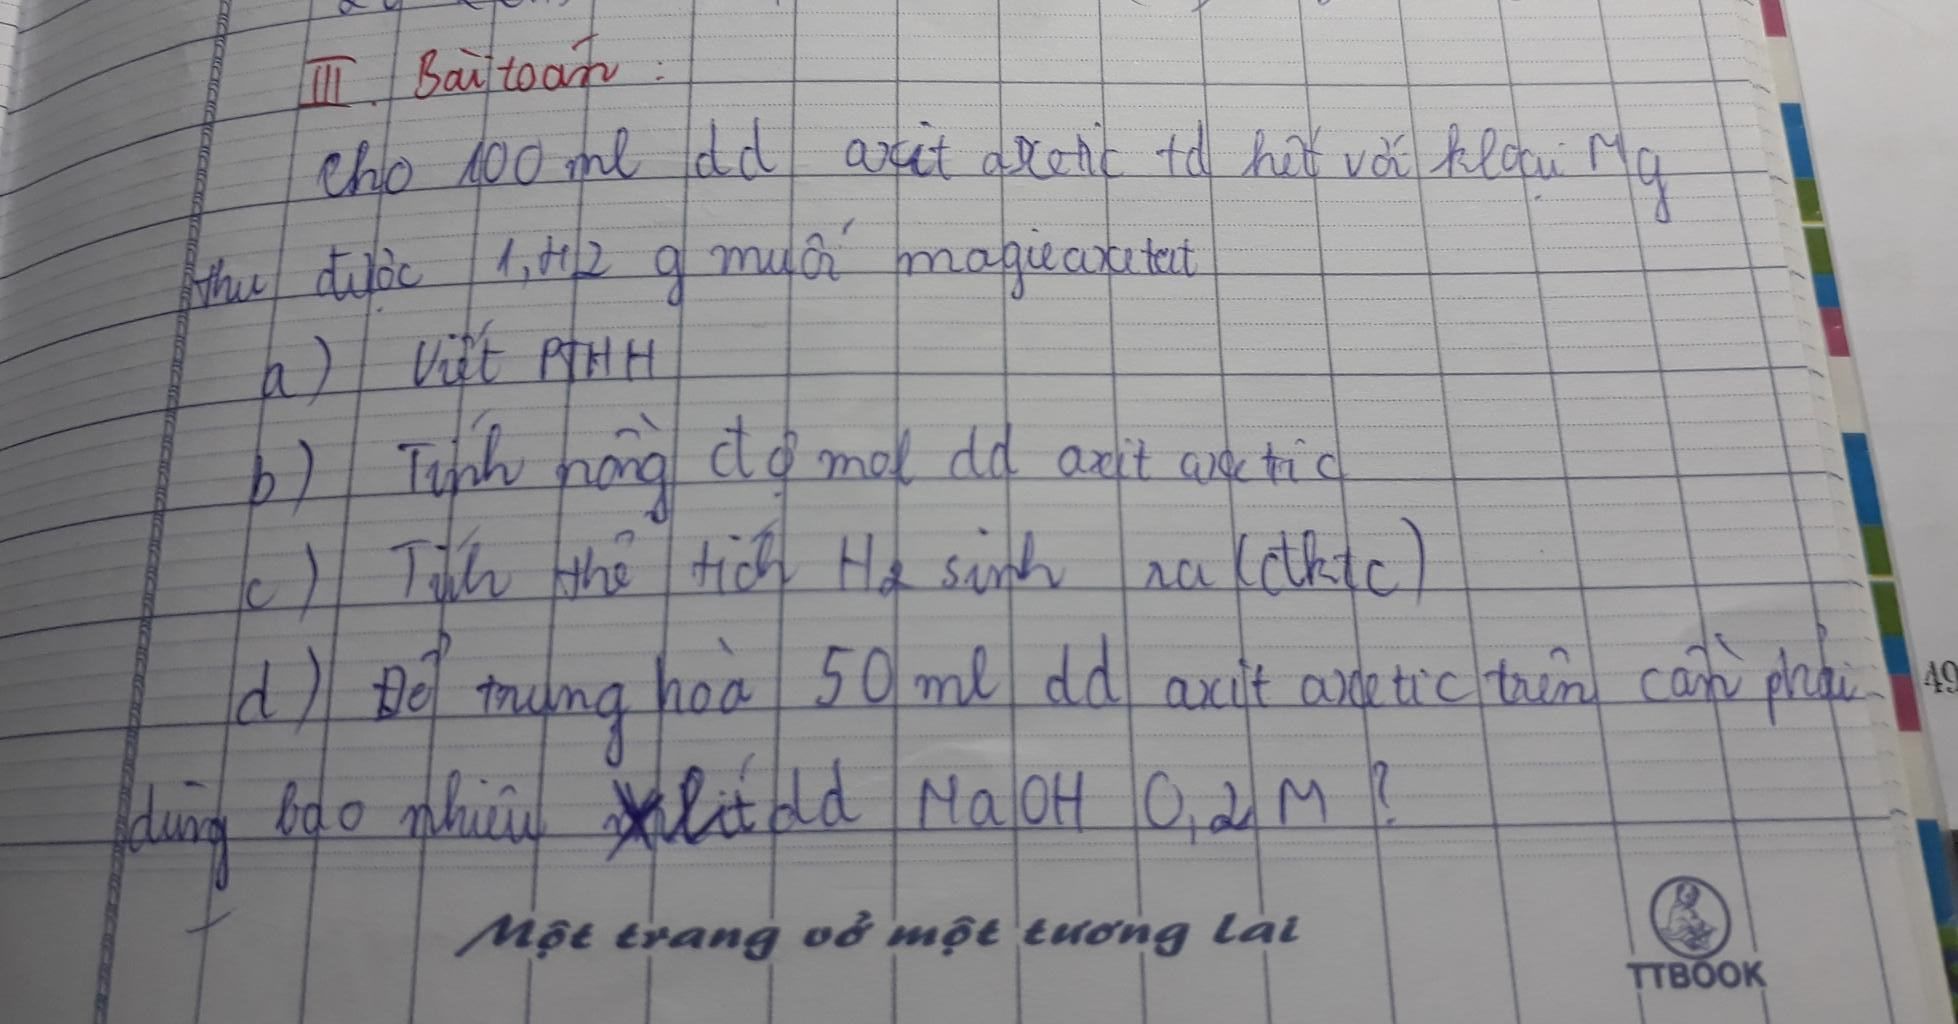 III. Bài toán :
Cho 100 ml dd axit axetic td hết với kloại Mg
thu được 1,42 g muối magieaxetat
a) Viết PTHH
b) Tính nồng độ mol dd axit axetic
c) Tính thể tích H2 sinh ra (đktc)
d) Để trung hoà 50 ml dd axit axetic trên cần phải
dùng bao nhiêu lít dd NaOH 0,2 M ?
Một trang vở một tương lai
TTBOOK
49